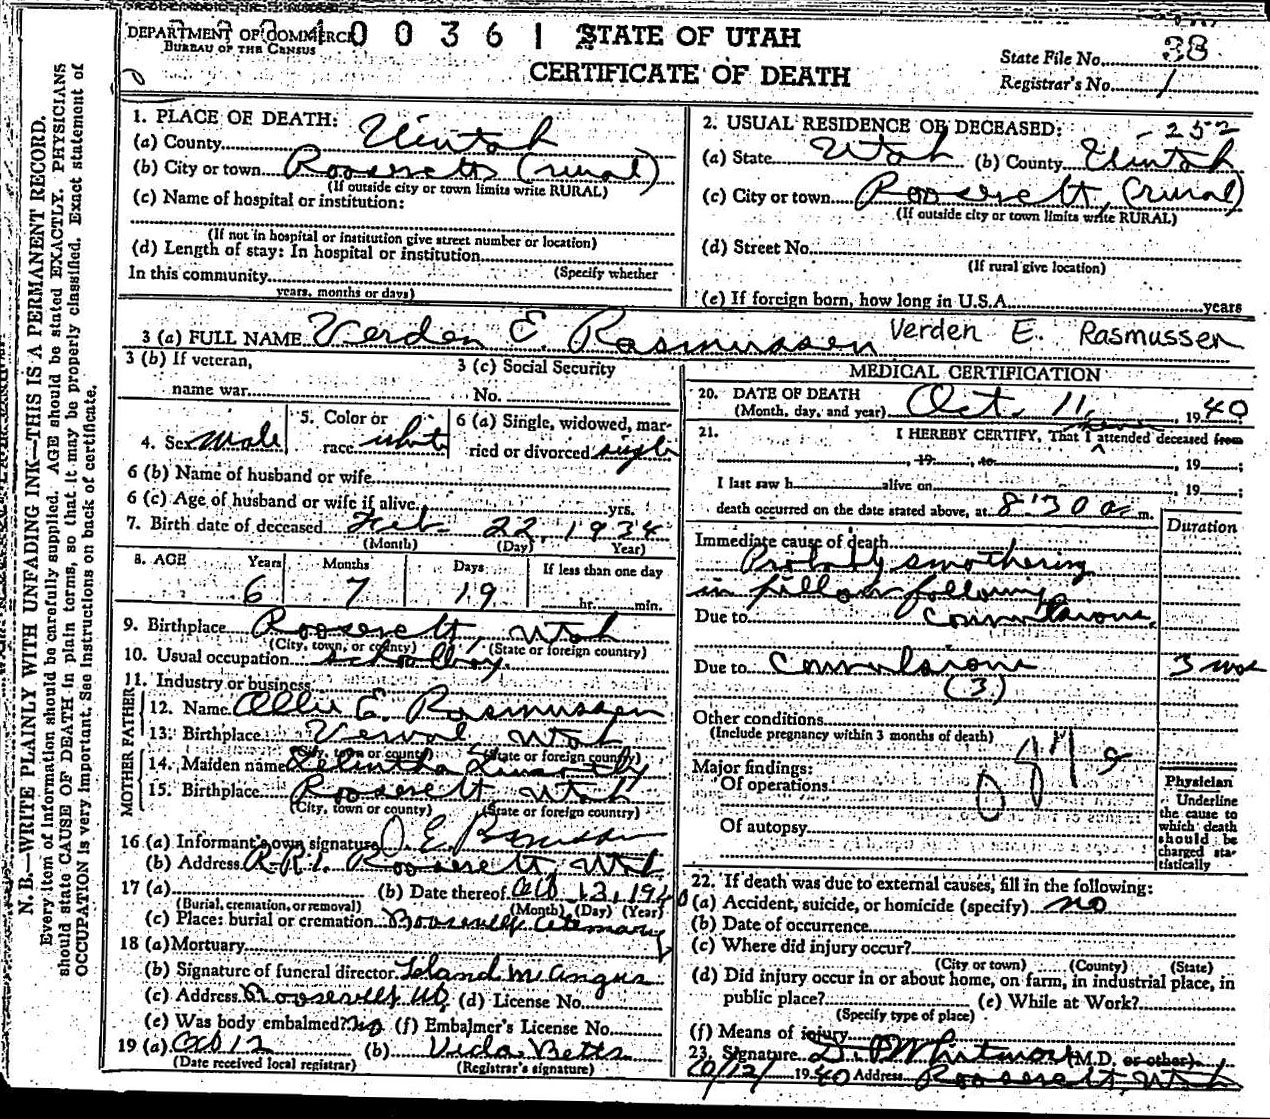 DEPARTMENT OF COMMERCE
BUREAU OF THE CENSUS
0 0 3 6 1
STATE OF UTAH
CERTIFICATE OF DEATH
State File No. 38
Registrar's No. 1
N. B.—WRITE PLAINLY WITH UNFADING INK—THIS IS A PERMANENT RECORD.
Every item of information should be carefully supplied. AGE should be stated EXACTLY. PHYSICIANS
should state CAUSE OF DEATH in plain terms, so that it may be properly classified. Exact statement of
OCCUPATION is very important. See instructions on back of certificate.
1. PLACE OF DEATH:
(a) County Uintah
(b) City or town Roosevelt (rural)
(If outside city or town limits write RURAL)
(c) Name of hospital or institution:
(If not in hospital or institution give street number or location)
(d) Length of stay: In hospital or institution
(Specify whether
In this community
years, months or days)
2. USUAL RESIDENCE OF DECEASED: -252
(a) State Utah (b) County Uintah
(c) City or town Roosevelt, (rural)
(If outside city or town limits write RURAL)
(d) Street No.
(If rural give location)
(e) If foreign born, how long in U.S.A. years
3 (a) FULL NAME Verden E. Rasmussen Verden E. Rasmussen
3 (b) If veteran,
name war
3 (c) Social Security
No.
4. Sex male
5. Color or
race white
6 (a) Single, widowed, mar-
ried or divorced single
6 (b) Name of husband or wife
6 (c) Age of husband or wife if alive yrs.
7. Birth date of deceased Feb 22, 1934
(Month) (Day) (Year)
8. AGE Years Months Days If less than one day
6 7 19 hr. min.
9. Birthplace Roosevelt, Utah
(City, town, or county) (State or foreign country)
10. Usual occupation schoolboy.
11. Industry or business
FATHER
12. Name Ollie E. Rasmussen
13. Birthplace Vernal Utah
(City, town or county) (State or foreign country)
MOTHER
14. Maiden name
15. Birthplace Roosevelt Utah
(City, town or county) (State or foreign country)
16 (a) Informant's own signature O. E. Rasmussen
(b) Address R.R.1. Roosevelt Utah
17 (a) (b) Date thereof Oct. 13, 1940
(Burial, cremation, or removal) (Month) (Day) (Year)
(c) Place: burial or cremation Roosevelt Cemetary
18 (a) Mortuary
(b) Signature of funeral director Leland McAngus
(c) Address Roosevelt Ut (d) License No.
(e) Was body embalmed? no (f) Embalmer's License No.
19 (a) Oct 12 (b) Vida Betts
(Date received local registrar) (Registrar's signature)
MEDICAL CERTIFICATION
20. DATE OF DEATH
(Month, day, and year) Oct. 11, 1940
21. I HEREBY CERTIFY, That I attended deceased from
, 19 , to , 19 ;
I last saw h alive on , 19 ;
death occurred on the date stated above, at 8:30 a m.
Duration
Immediate cause of death
Probably smothering
in pillow following
Due to convulsions.
Due to Convulsions 3 mos
(3)
Other conditions
(Include pregnancy within 3 months of death)
Major findings:
Of operations
Of autopsy
Physician
Underline
the cause to
which death
should be
charged sta-
tistically
22. If death was due to external causes, fill in the following:
(a) Accident, suicide, or homicide (specify) no
(b) Date of occurrence
(c) Where did injury occur?
(City or town) (County) (State)
(d) Did injury occur in or about home, on farm, in industrial place, in
public place? (e) While at Work?
(Specify type of place)
(f) Means of injury
23. Signature Whitmore (M.D. or other)
10/12/ 1940 Address Roosevelt, Utah